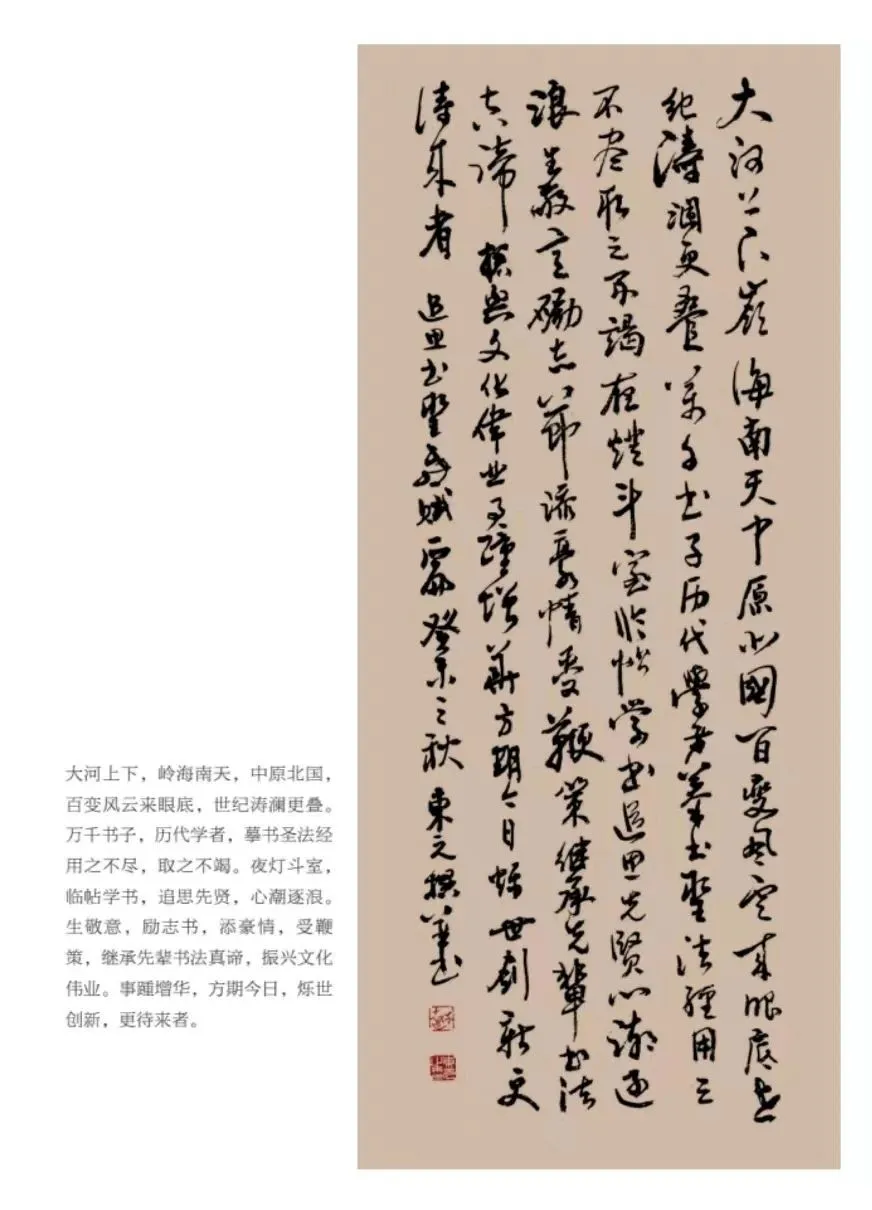 大河上下嶺海南天中原北國百變風雲来眼底世
紀濤瀾更疊萬千书子历代學者摹书聖法經用之
不尽取之不竭夜燈斗室临帖学书追思先賢心潮逐
浪生敬意勵志節添豪情受鞭策继承先輩书法
真諦振興文化偉业事踵增華方期今日烁世創新更
待来者 追思书聖賦 癸未之秋 東之撰并书
大河上下，岭海南天，中原北国，
百变风云来眼底，世纪涛澜更叠。
万千书子，历代学者，摹书圣法经
用之不尽，取之不竭。夜灯斗室，
临帖学书，追思先贤，心潮逐浪。
生敬意，励志书，添豪情，受鞭
策，继承先辈书法真谛，振兴文化
伟业。事踵增华，方期今日，烁世
创新，更待来者。